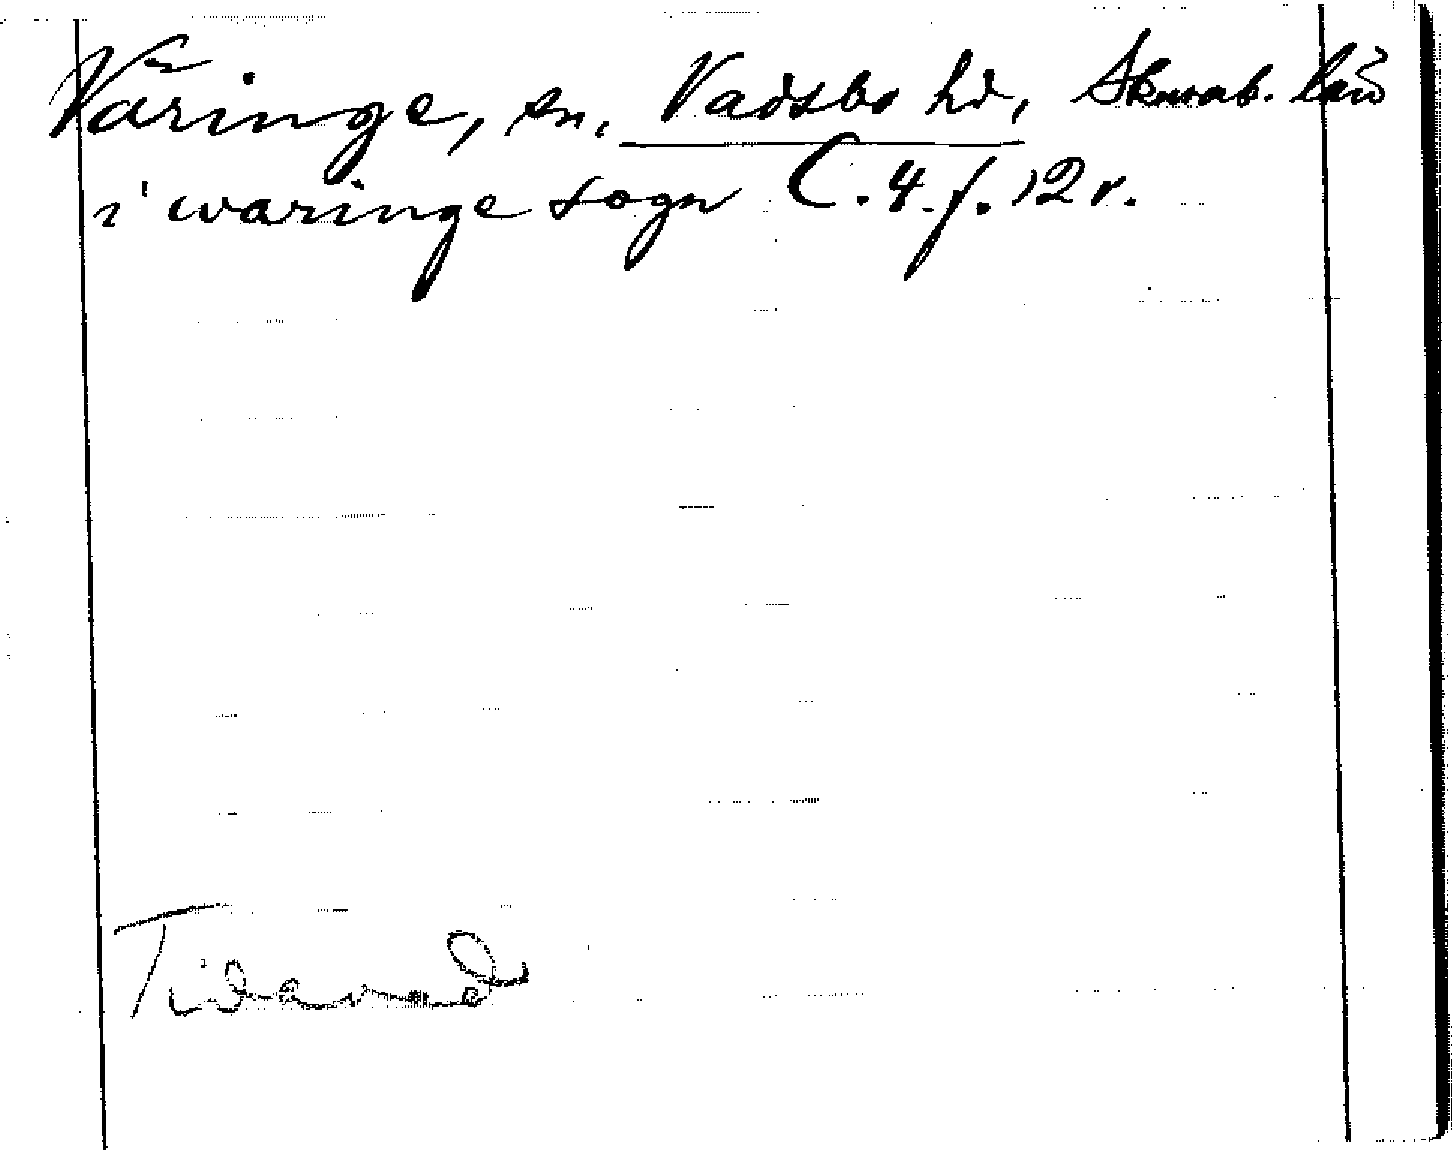 Väringe, sn, Vadsbo hd, Skarab. län
i waringe sogn C. 4. f. 12 v.
Tidavad